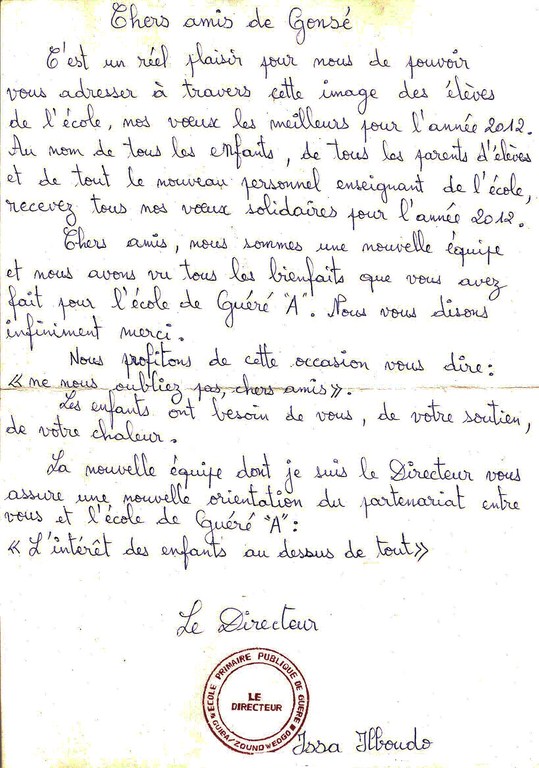 Chers amis de Gonsé
C'est un réel plaisir pour nous de pouvoir
vous adresser à travers cette image des élèves
de l'école, nos vœux les meilleurs pour l'année 2012.
Au nom de tous les enfants, de tous les parents d'élèves
et de tout le nouveau personnel enseignant de l'école,
recevez tous nos vœux solidaires pour l'année 2012.
Chers amis, nous sommes une nouvelle équipe
et nous avons vu tous les bienfaits que vous avez
fait pour l'école de Guéré "A". Nous vous disons
infiniment merci.
Nous profitons de cette occasion vous dire :
« ne nous oubliez pas, chers amis ».
Les enfants ont besoin de vous, de votre soutien,
de votre chaleur.
La nouvelle équipe dont je suis le Directeur vous
assure une nouvelle orientation du partenariat entre
vous et l'école de Guéré "A" :
« L'intérêt des enfants au dessus de tout »
Le Directeur
ECOLE PRIMAIRE PUBLIQUE DE GUERE
LE
DIRECTEUR
GUIBA/ZOUNDWEOGO
Issa Ilboudo